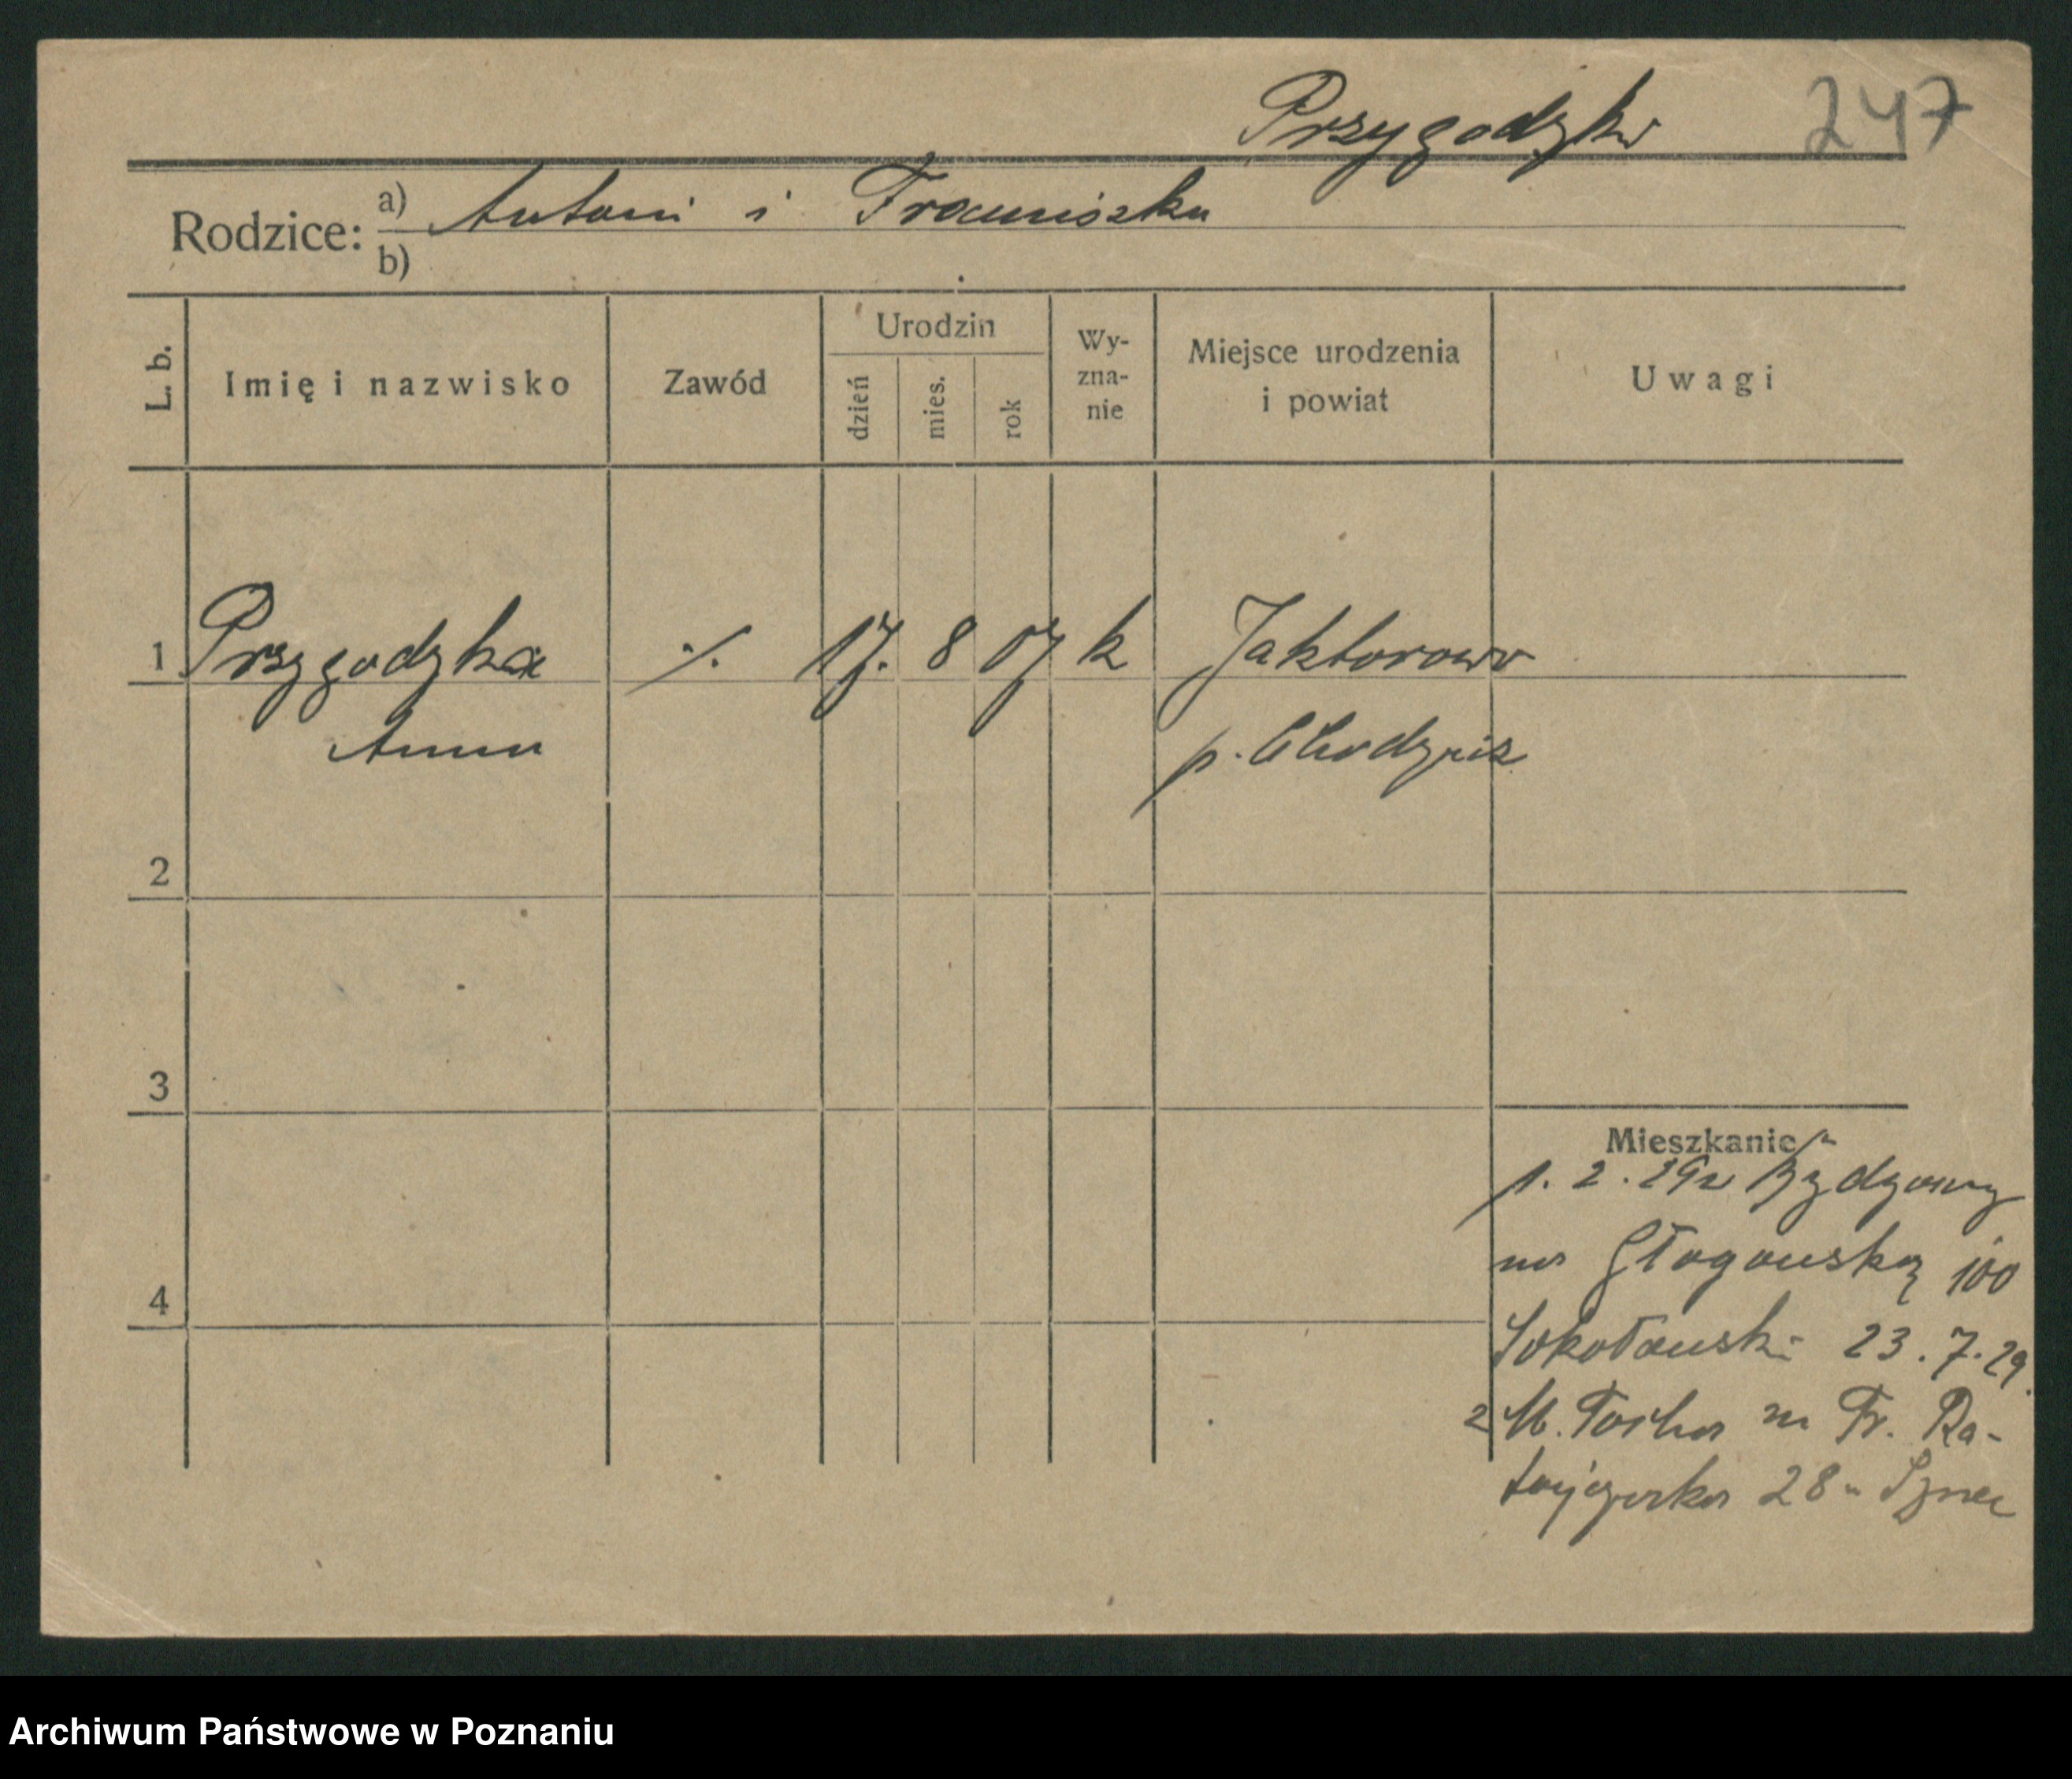 Przygodzka 247
Rodzice: a) Antoni i Franciszka
b)
L. b. Imię i nazwisko Zawód Urodzin dzień mies. rok Wy-zna-nie Miejsce urodzenia i powiat Uwagi
1 Przygodzka ·/. 17. 8 07 k Jaktorowo
Anna p. Chodzież
2
3
Mieszkanie
1. 2. 29
na Głogowską 100
4
Sokołowski 23. 7. 29.
2 M. Fr. Ra-
tajczaka 28
Archiwum Państwowe w Poznaniu